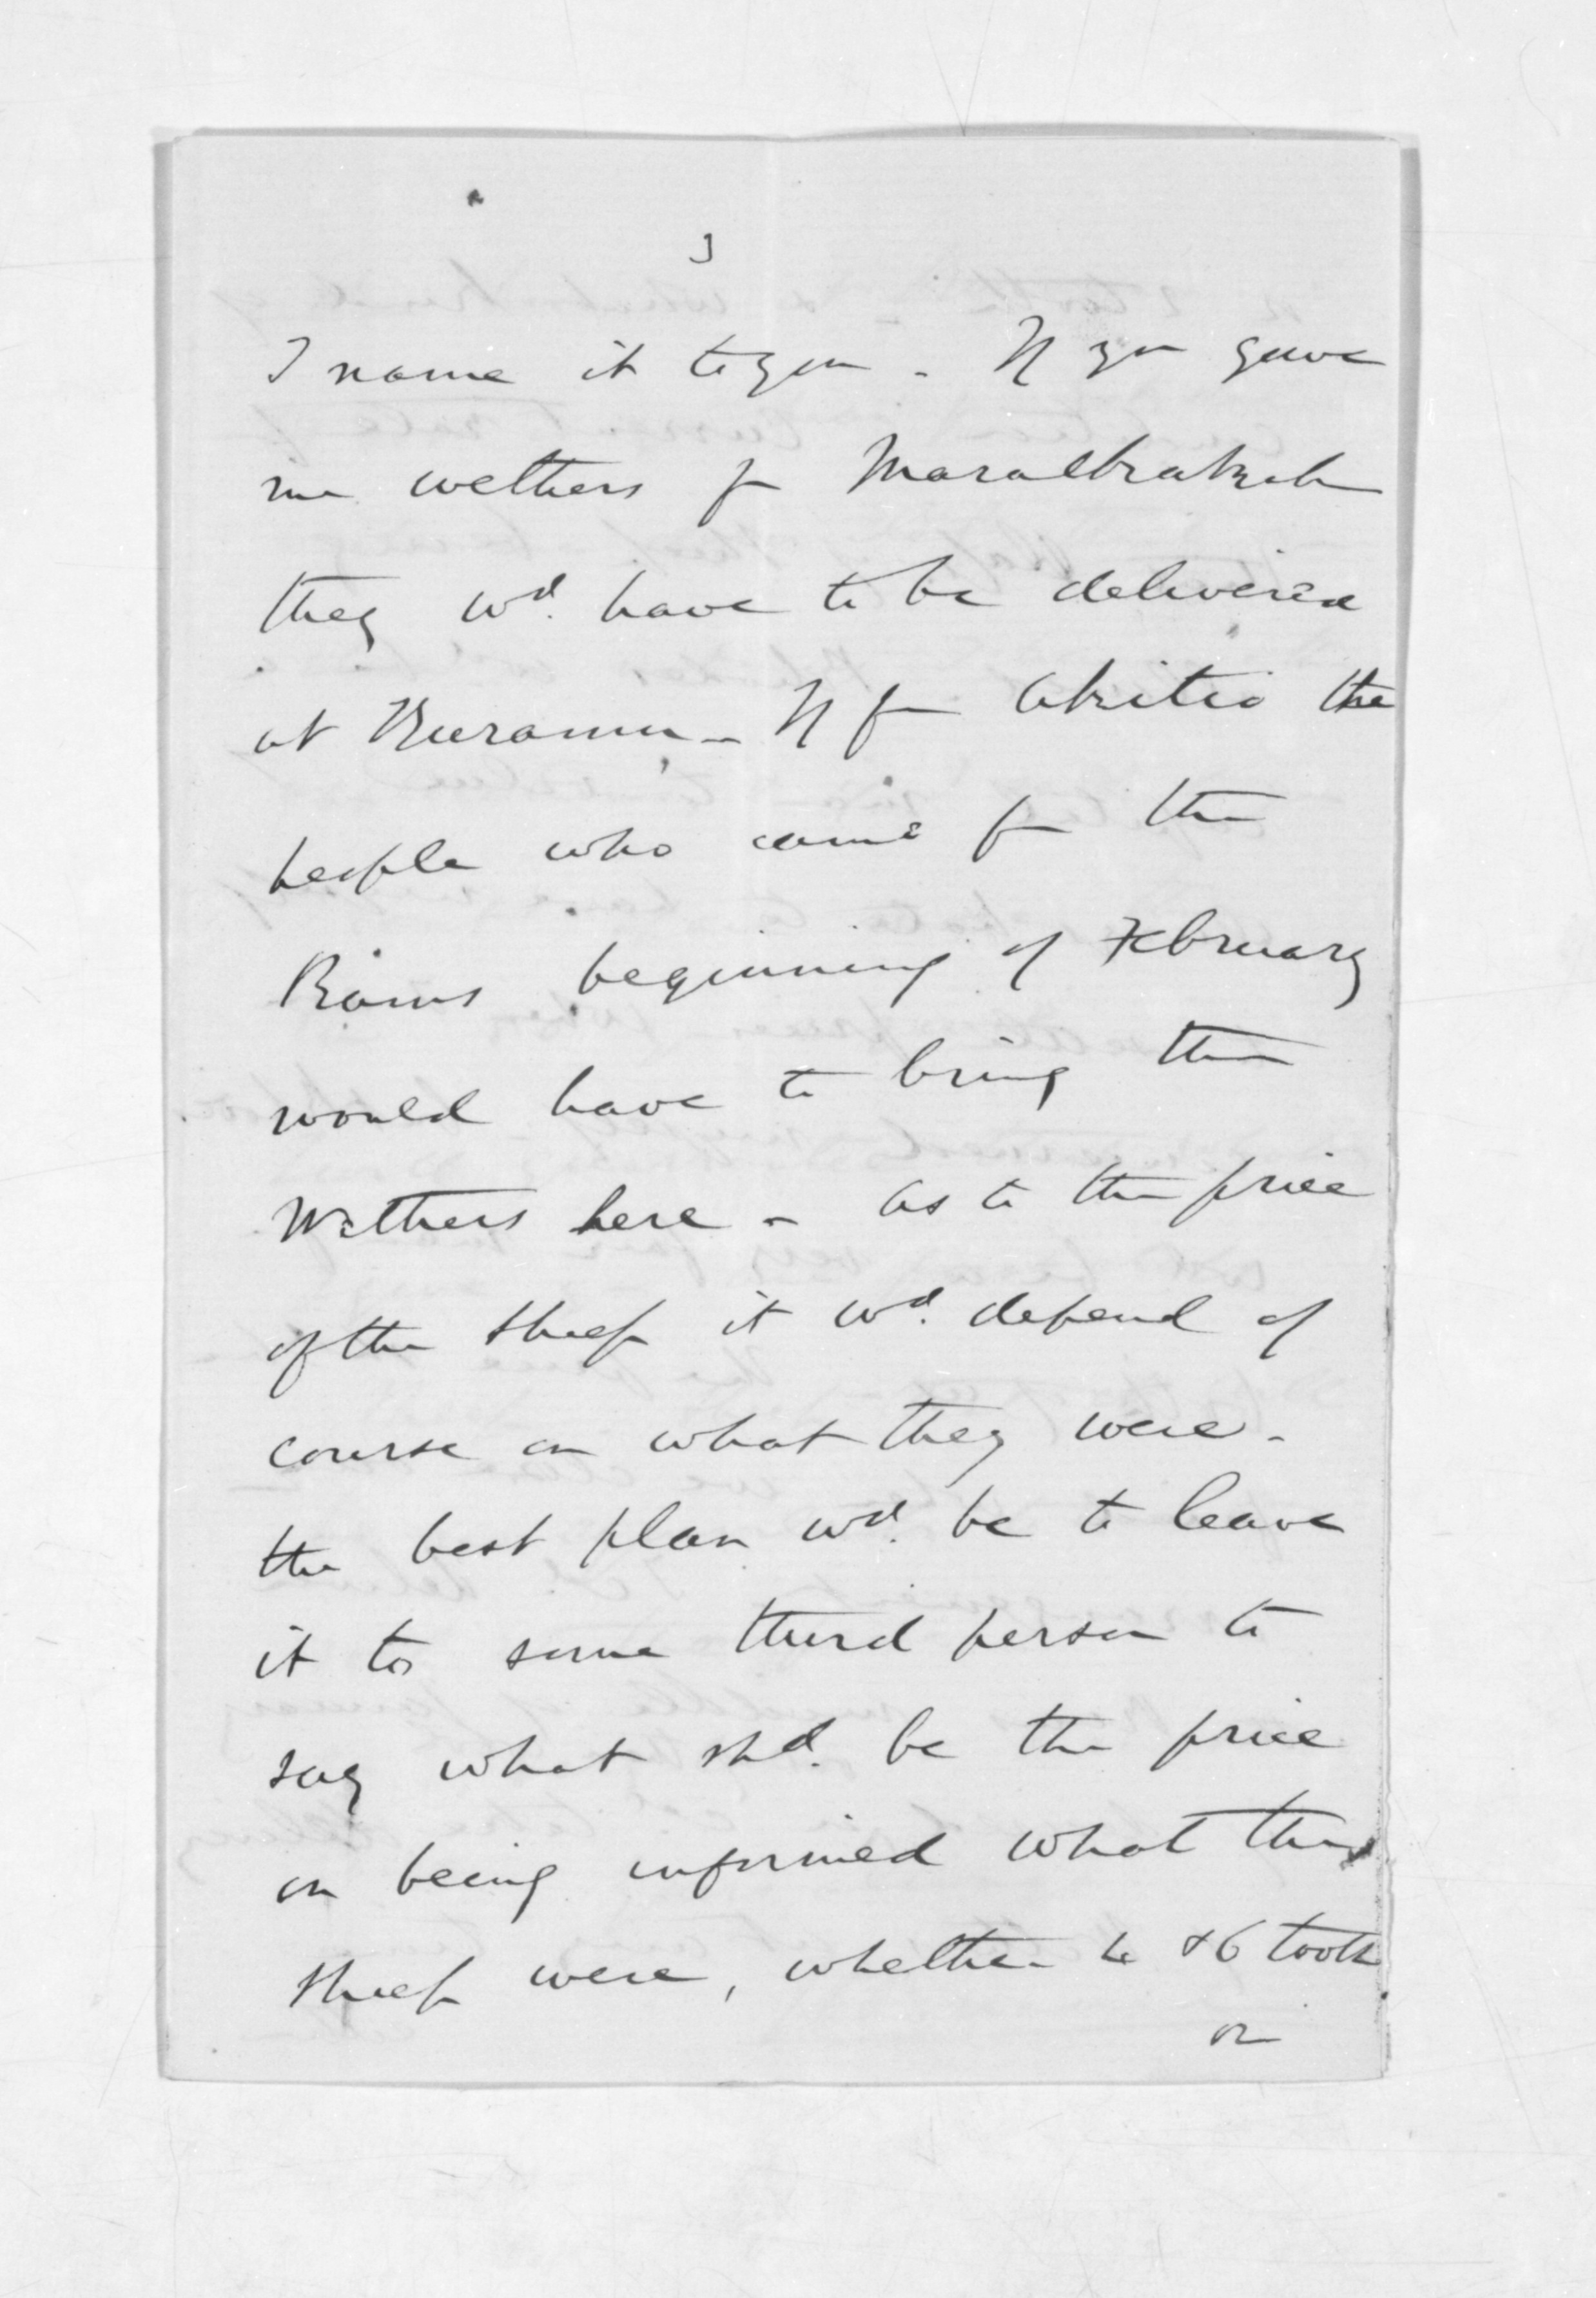 3
I name it to you - If you gave
me wethers for Maraekakaho
they wd. have to be delivered
at Kuranui - If for Akitio the
people who came for the
Rams beginning of February
would have to bring the
Wethers here - As to the price
of the sheep it wd. depend of
course on what they were -
the best plan wd. be to leave
it to some third person to
say what shd. be the price
on being informed what the
sheep were, whether 4 & 6 tooth
or